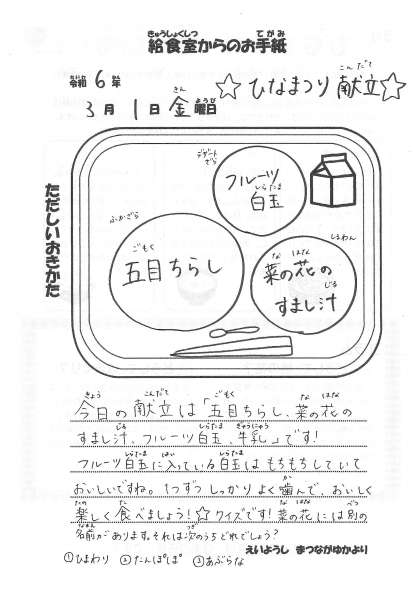 きゅうしょくしつ てがみ
給食室からのお手紙
れいわ ねん
令和 6 年
こんだて
☆ひなまつり献立☆
きん ようび
3 月 1 日 金 曜日
ただしいおきかた
デザートざら
フルーツ
しらたま
白玉
ふかざら
ごもく
五目ちらし
しるわん
な はな
菜の花の
じる
すまし汁
きょう こんだて ごもく な はな
今日の献立は「五目ちらし、菜の花の
じる しらたま ぎゅうにゅう
すまし汁、フルーツ白玉、牛乳」です!
しらたま はい しらたま
フルーツ白玉に入っている白玉はもちもちしていて
か
おいしいですね。1つずつしっかりよく噛んで、おいしく
たの た な はな べつ
楽しく食べましょう!☆クイズです!菜の花には別の
なまえ つぎ
名前があります。それは次のうちどれでしょう?
えいようし まつながゆかより
①ひまわり ②たんぽぽ ③あぶらな